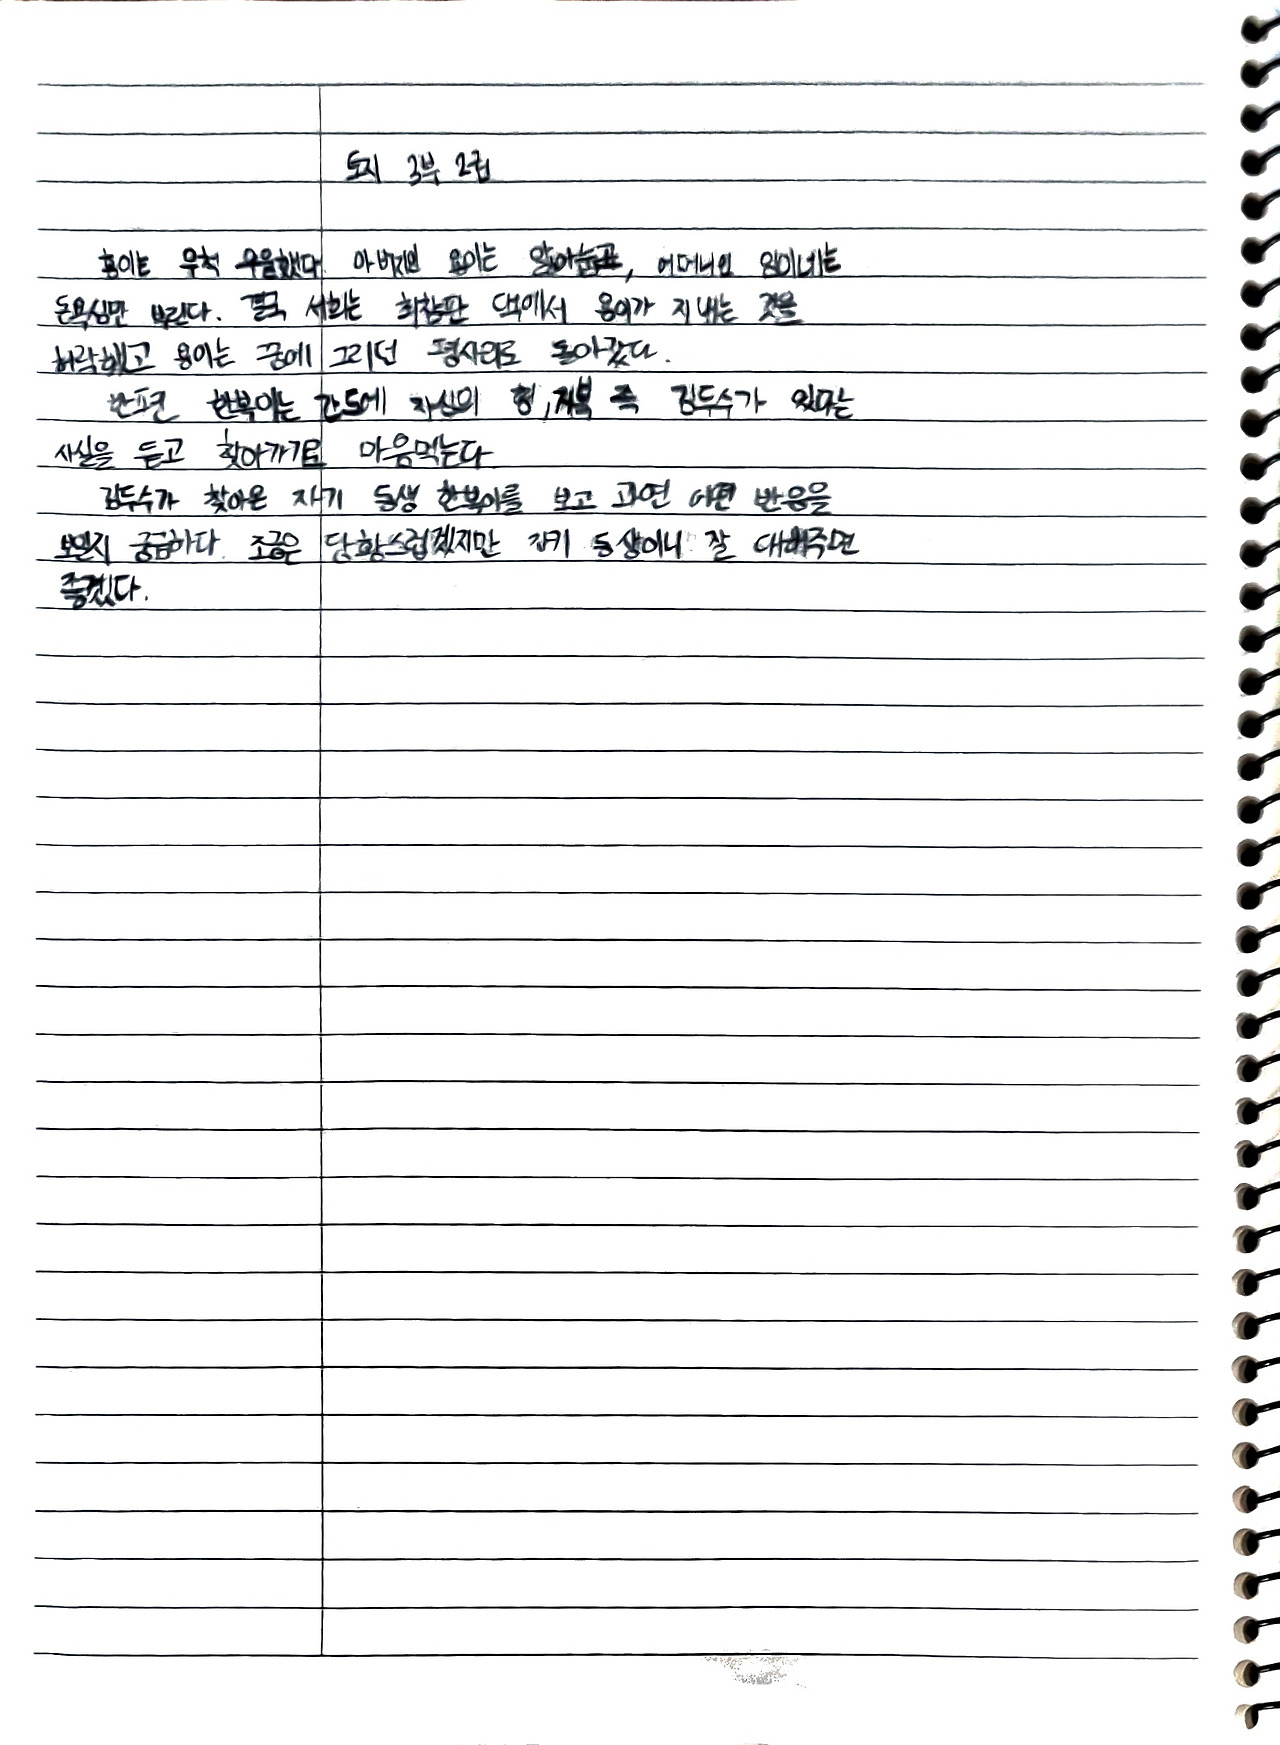 토지 3부 2권
홍이는 무척 우울했다 아버지인 용이는 앓아눕고, 어머니인 임이네는
돈욕심만 부린다. 결국 서희는 최참판 댁에서 용이가 지내는 것을
허락했고 용이는 꿈에 그리던 평사리로 돌아갔다.
한편 한복이는 간도에 자신의 형, 거복 즉 김두수가 있다는
사실을 듣고 찾아가기로 마음먹는다
김두수가 찾아온 자기 동생 한복이를 보고 과연 어떤 반응을
보일지 궁금하다 조금은 당황스럽겠지만 자기 동생이니 잘 대해주면
좋겠다.